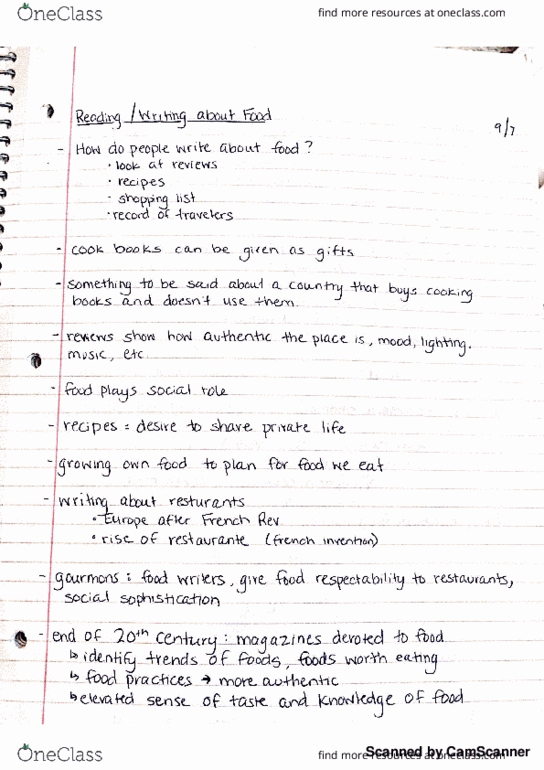 OneClass
find more resources at oneclass.com
Reading / Writing about Food
9/7
- How do people write about food?
• look at reviews
• recipes
• shopping list
• record of travelers
- cook books can be given as gifts
- something to be said about a country that buys cooking
books and doesn't use them.
- reviews show how authentic the place is, mood, lighting.
music, etc
- food plays social role
- recipes = desire to share private life
- growing own food to plan for food we eat
- writing about resturants
• Europe after French Rev
• rise of restaurante (french invention)
- gourmons : food writers, give food respectability to restaurants,
social sophistication
- end of 20th century : magazines devoted to food
↳ identify trends of foods, foods worth eating
↳ food practices → more authentic
↳ elevated sense of taste and knowledge of food
OneClass
find more resources at oneclass.com
Scanned by CamScanner